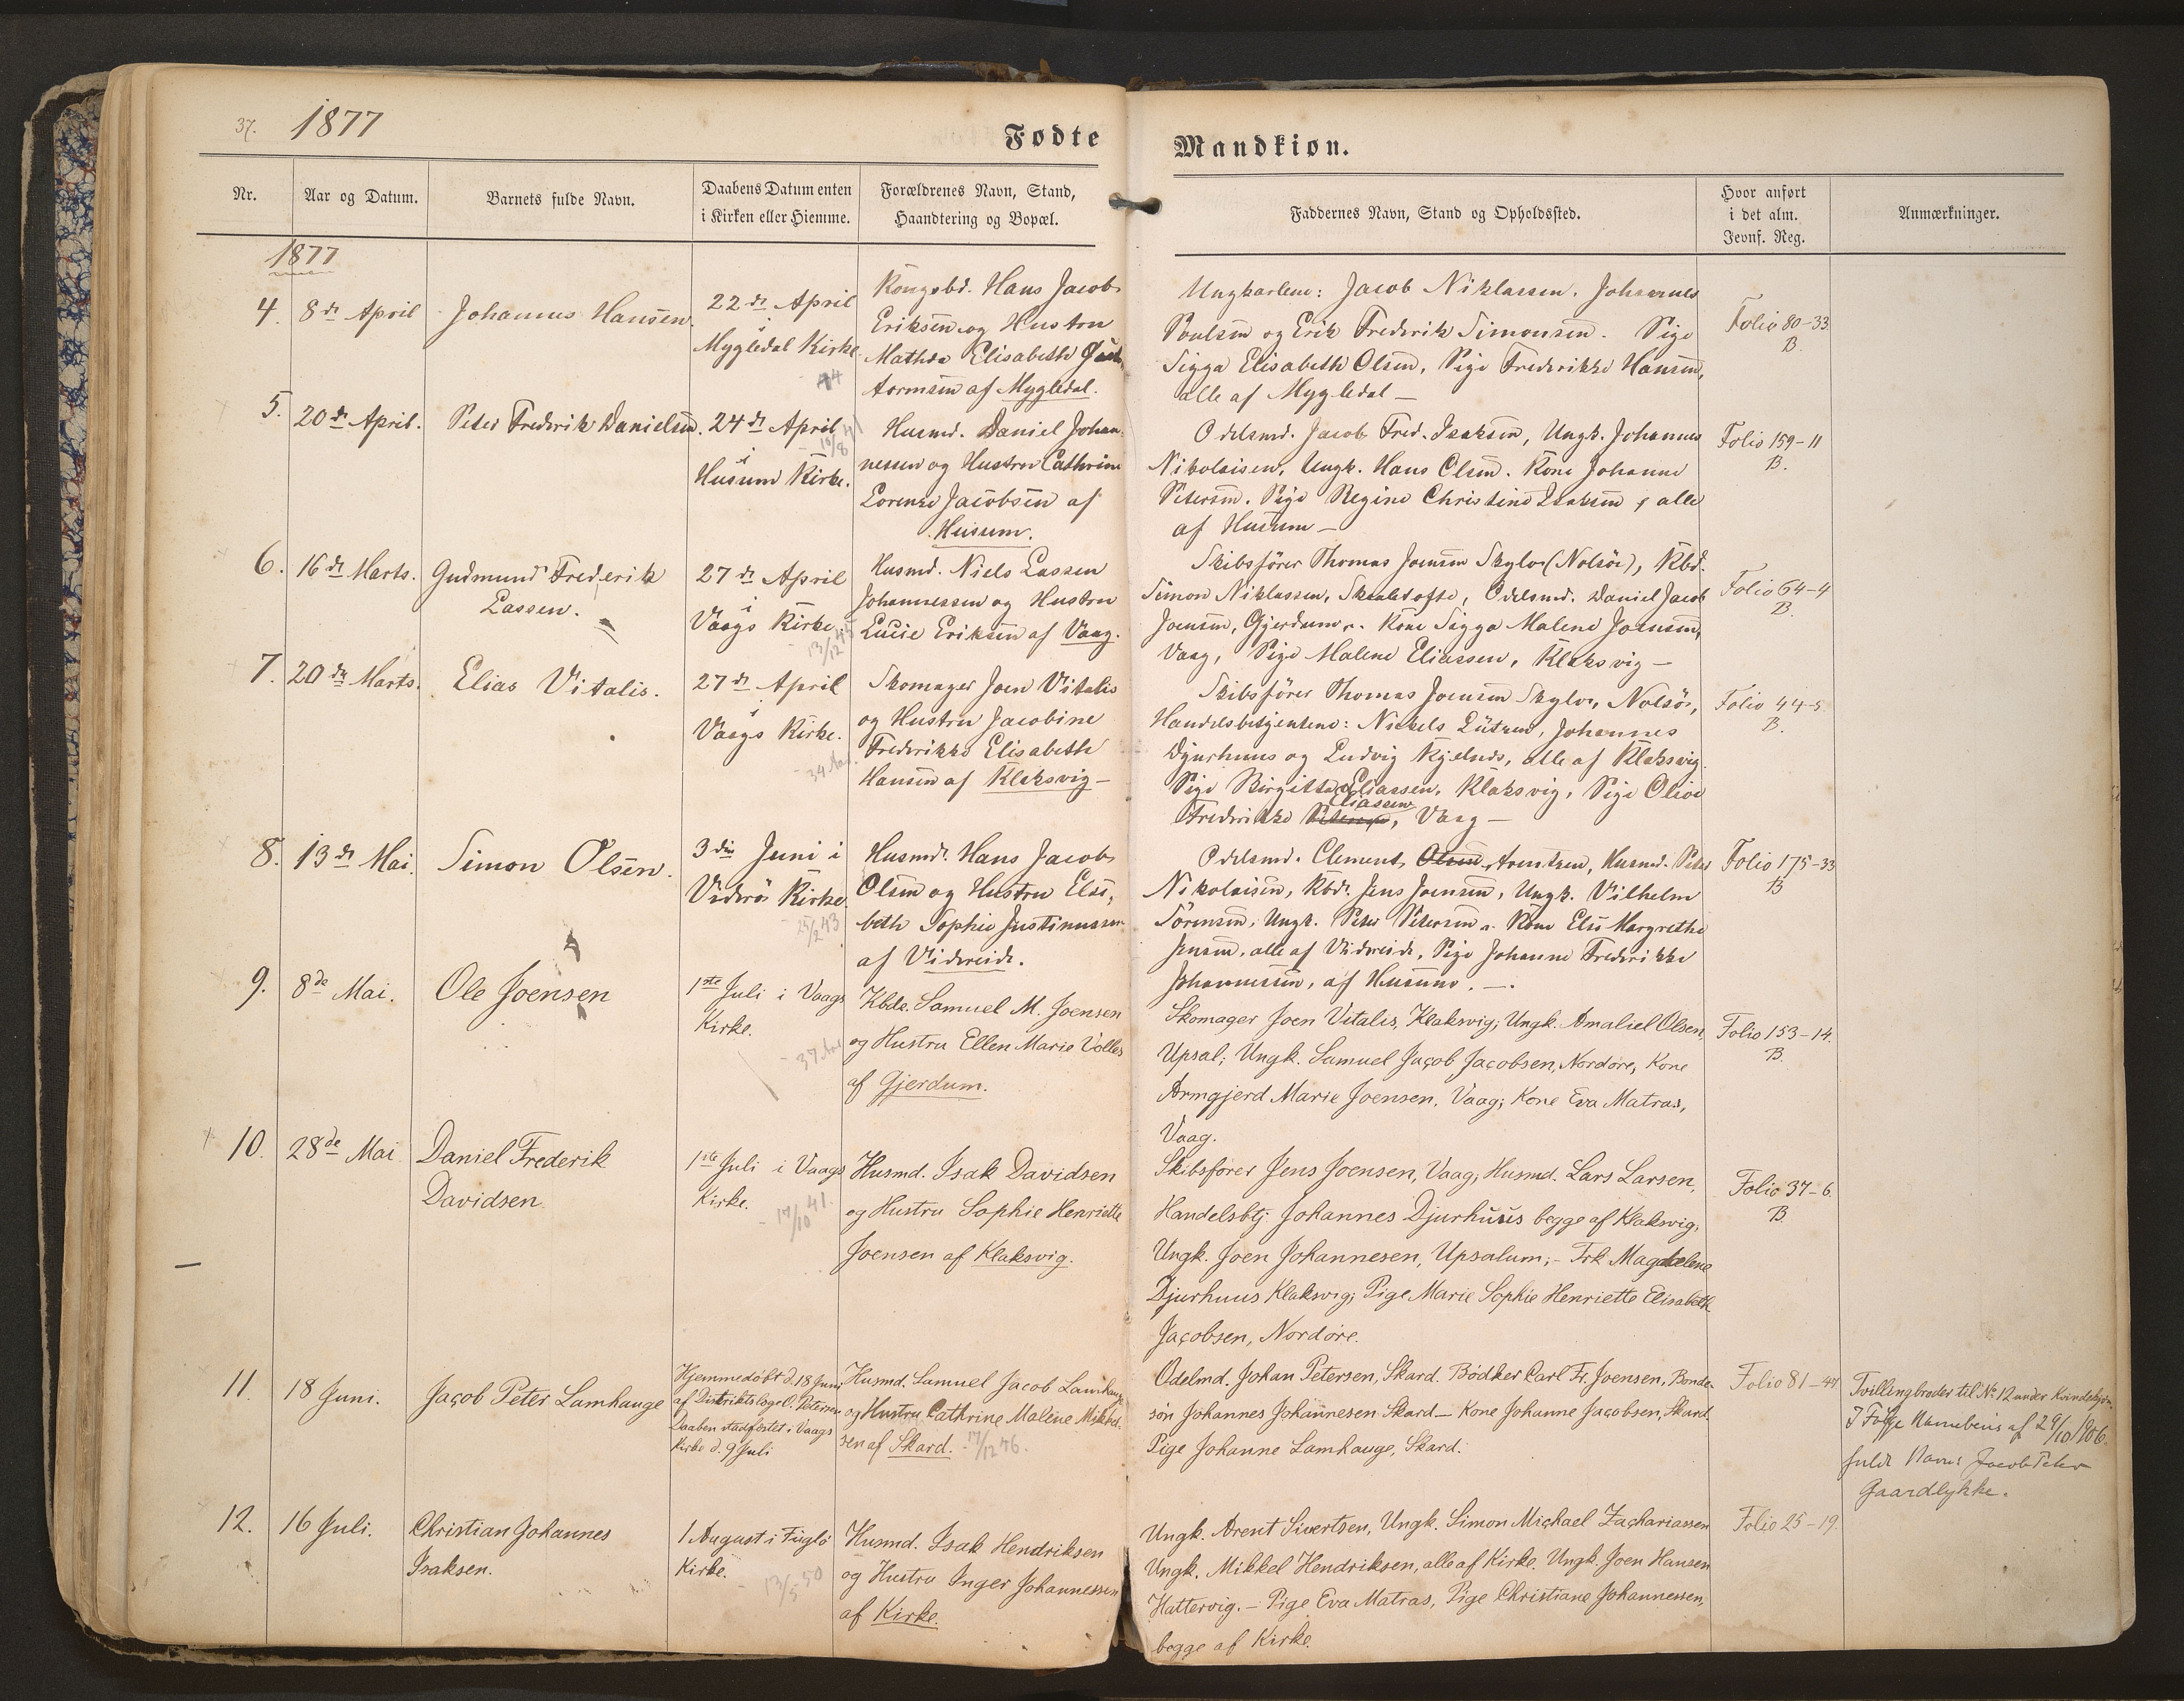 37. 1877
Fødte
Mandkiøn.
Nr.
Aar og Datum.
Barnets fulde Navn.
Daabens Datum enten
i Kirken eller Hiemme.
Forældrenes Navn, Stand,
Haandtering og Bopæl.
Faddernes Navn, Stand og Opholdssted.
Hvor anført
i det alm.
Jevnf. Reg.
Anmærkninger.
1877
4.
8de April
Johannes Hansen.
22de April
i
Mygledal Kirke
Kongsbd. Hans Jacob
Eriksen og Hustru
Mathea Elisabeth
tormsen af Mygledal.
Ungkarlene: Jacob Niklassen, Johannes
Poulsen og Erik Frederik Simonsen. Pige
Sigga Elisabeth Olsen, Pige Frederikke Hansen,
alle af Mygledal —
Folio 80-33
B.
5.
20de April.
Peter Frederik Danielsen.
24de April
i
Husum Kirke.
Husmd. Daniel Johan-
nessen og Hustru Cathrine
Lorense Jacobsen af
Husum.
Odelsmd. Jacob Fred. Isaksen, Ungk. Johannes
Nikolaisen, Ungk. Hans Olsen. Kone Johanne
Petersen. Pige Regine Christine Isaksen, alle
af Husum —
Folio 159-11
B.
6.
16de Marts.
Gudmund Frederik
Lassen.
27de April
i
Vaags Kirke.
13/12 45
Husmd. Niels Lassen
Johannessen og Hustru
Lucie Eriksen af Vaag.
Skibsfører Thomas Joensen Skylv (Nolsø), Kbd.
Simon Niklassen, Skaaletofte, Odelsmd. Daniel Jacob
Joensen, Gjerdum. Kone Sigga Malene Joensen,
Vaag, Pige Malene Eliassen, Klaksvig —
Folio 64-4
B.
7.
20de Marts.
Elias Vitalis.
27de April
i
Vaags Kirke.
34 Aar.
Skomager Joen Vitalis
og Hustru Jacobine
Frederikke Elisabeth
Hansen af Klaksvig —
Skibsfører Thomas Joensen Skylv, Nolsø,
Handelsbetjentene: Nickels Lützen, Johannes
Djurhuus og Ludvig Kjelnes, alle af Klaksvig.
Pige Birgitte Eliassen, Klaksvig, Pige Olivi
Eliassen
Frederikke Petersen, Vaag —
Folio 44-5
B.
8.
13de Mai.
Simon Olsen.
3die Juni i
Viderø Kirke.
25/2 43
Husmd. Hans Jacob
Olsen og Hustru Elsi-
beth Sophie Justinussen
af Videreide.
Odelsmd. Clement Olsen Arentsen, Husmd. Peter
Nikolaisen, Kbd. Jens Joensen, Ungk. Vilhelm
Sørensen, Ungk. Peter Petersen. Kone Else Margrethe
Jensen, alle af Videreide, Pige Johanne Frederikke
Johannessen, af Husum. —
Folio 175-33
B
9.
8de Mai.
Ole Joensen
1ste Juli i Vaags
Kirke.
37 Aar
Kbde. Samuel M. Joensen
og Hustru Ellen Marie Volles
af Gjerdum.
Skomager Joen Vitalis, Klaksvig; Ungk. Amaliel Olsen,
Upsal; Ungk. Samuel Jacob Jacobsen, Nordøre, Kone
Armgjerd Marie Joensen, Vaag; Kone Eva Matras,
Vaag.
Folio 153-14.
B.
10.
28de Mai
Daniel Frederik
Davidsen
1ste Juli i Vaags
Kirke.
17/10 41.
Husmd. Isak Davidsen
og Hustru Sophie Henriette
Joensen af Klaksvig.
Skibsfører Jens Joensen, Vaag; Husmd. Lars Larsen,
Handelsbtj Johannes Djurhuus begge af Klaksvig;
Ungk. Joen Johannesen, Upsalum; - Frk Magdalene
Djurhuus Klaksvig; Pige Marie Sophie Henriette Elisabeth
Jacobsen, Nordøre.
Folio 37-6.
B.
11.
18 Juni.
Jacob Peter Lamhauge
Hjemmedøbt d. 18 Juni
af Distriktslæge C. Petersen
Daaben stadfæstet i Vaags
Kirke d. 9 Juli
Husmd. Samuel Jacob Lamhauge
og Hustru Cathrine Malene Mikkel-
sen af Skard. 17/12 46.
Odelmd. Johan Petersen, Skard. Bødker Carl Fr. Joensen, Bonde-
søn Johannes Johannesen Skard — Kone Johanne Jacobsen, Skard.
Pige Johanne Lamhauge, Skard.
Folio 81-44
Tvillingbroder til No 12 under Kvindekjøn.
I Følge Navnebevis af 29/10 1906
fulde Navn: Jacob Peter
Gaardlykke.
12.
16 Juli.
Christian Johannes
Isaksen.
1 August i Fuglø
Kirke.
13/5 50
Husmd. Isak Hendriksen
og Hustru Inger Johannessen
af Kirke.
Ungk. Arent Sivertsen, Ungk. Simon Michael Zachariassen
Ungk. Mikkel Hendriksen, alle af Kirke. Ungk. Joen Hansen
Hattervig. — Pige Eva Matras, Pige Christiane Johannessen,
begge af Kirke.
Folio 25-19.